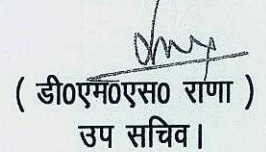 ( डी0एम0एस0 राणा )
उप सचिव।